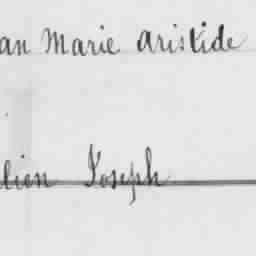 an Marie Aristide
lien Joseph